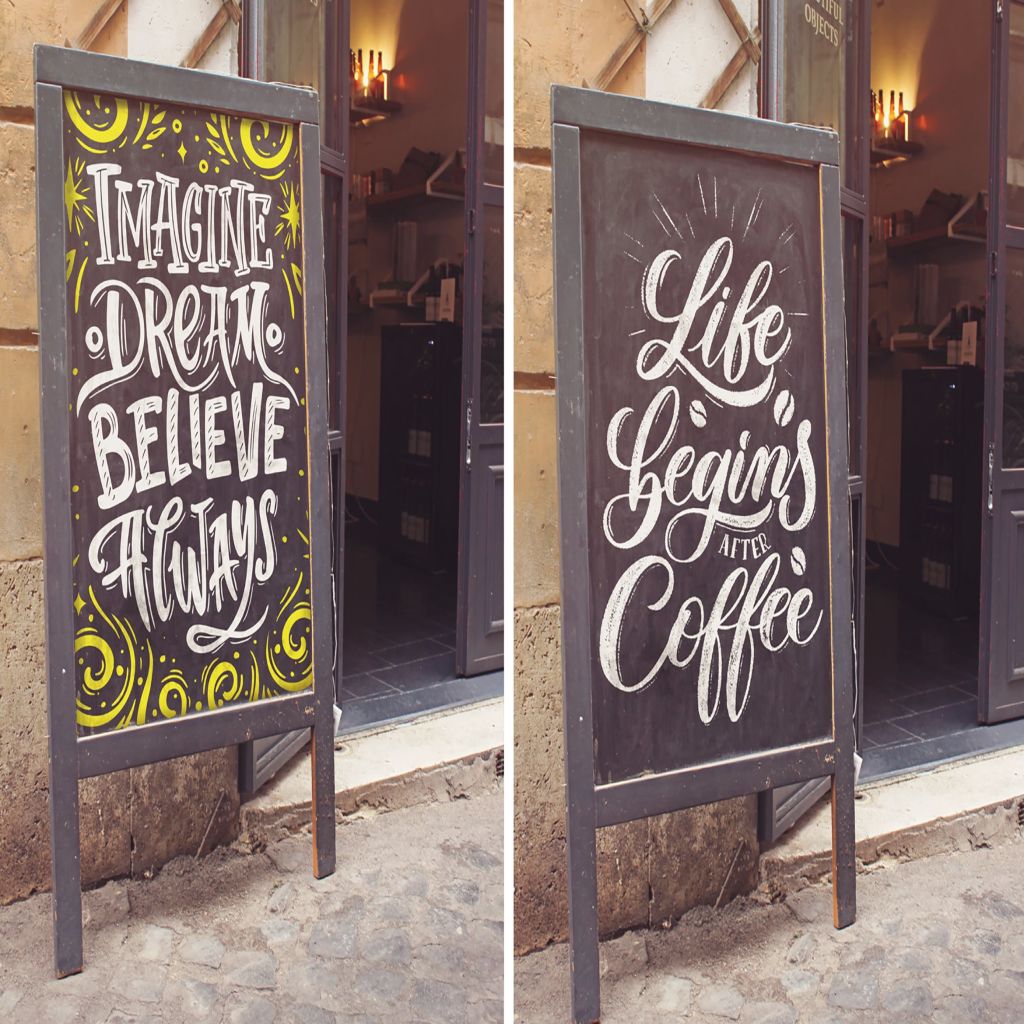 IMAGINE
DREAM
BELIEVE
ALWAYS
Life
begins
AFTER
Coffee
OBJECTS